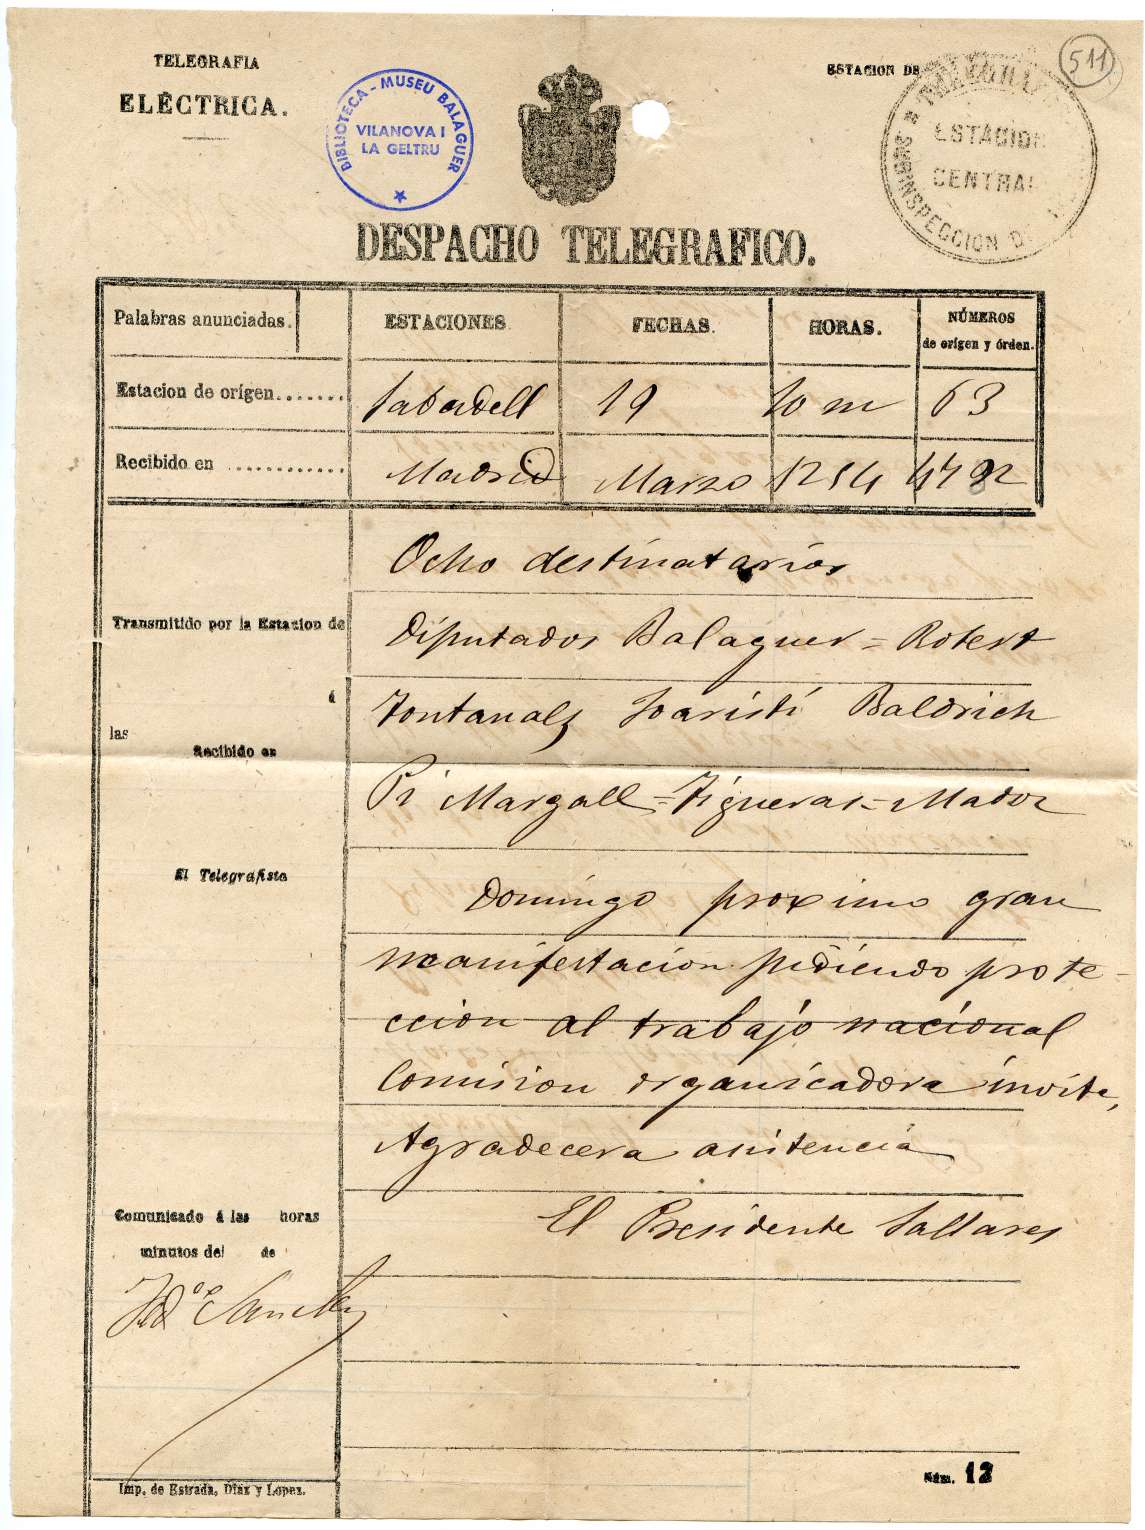 TELEGRAFIA
ELÉCTRICA.
BIBLIOTECA - MUSEU BALAGUER
VILANOVA I
LA GELTRU
ESTACION DE
511
ESTACION
CENTRAL
SUBINSPECCION D
DESPACHO TELEGRAFICO.
Palabras anunciadas. ESTACIONES FECHAS. HORAS. NÚMEROS
de orígen y órden.
Estacion de orígen....... Sabadell 19 10 m 63
Recibido en ............ Madrid Marzo 12 54
Ocho destinatarios
Transmitido por la Estacion de
Diputados Balaguer = Robert
á
Fontanals Joaristi Baldrich
las
Recibido en
Pi Margall = Figueras = Mador
El Telegrafista
Domingo proximo gran
manifestacion pidiendo prote-
ccion al trabajo nacional
Comision organicadora invita,
Agradecera asistencia
El Presidente Sallares
Comunicado á las horas
minutos del de
Imp. de Estrada, Díaz y Lopez.
Núm. 12